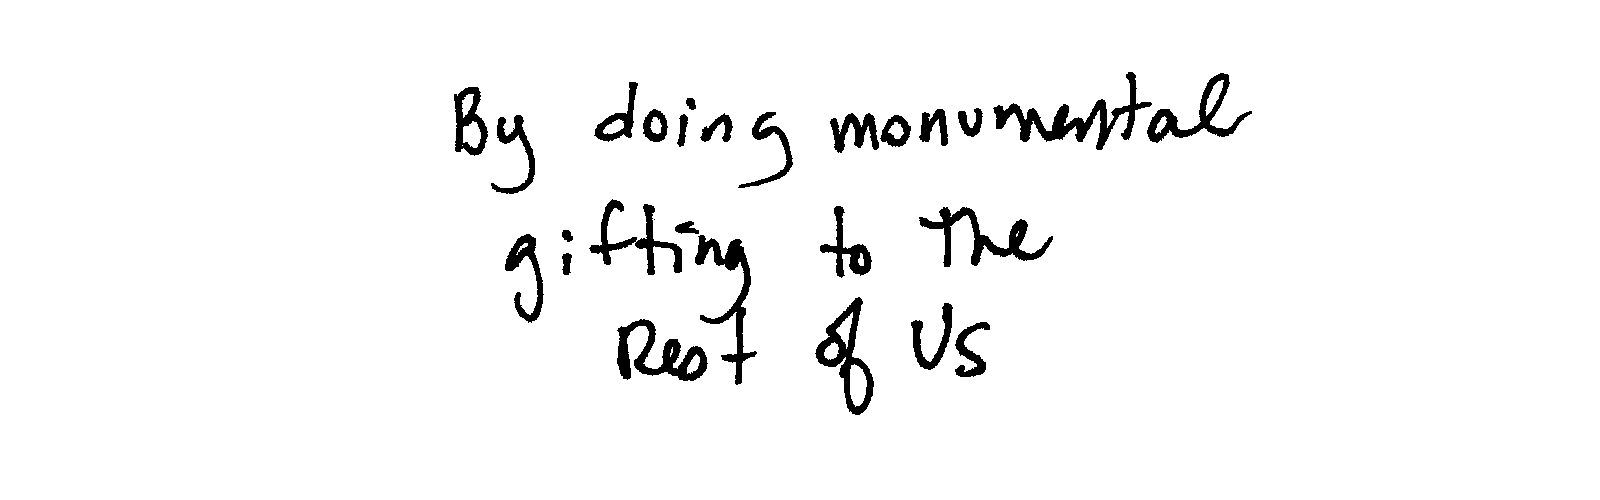 By doing monumental
gifting to The
Rest of US